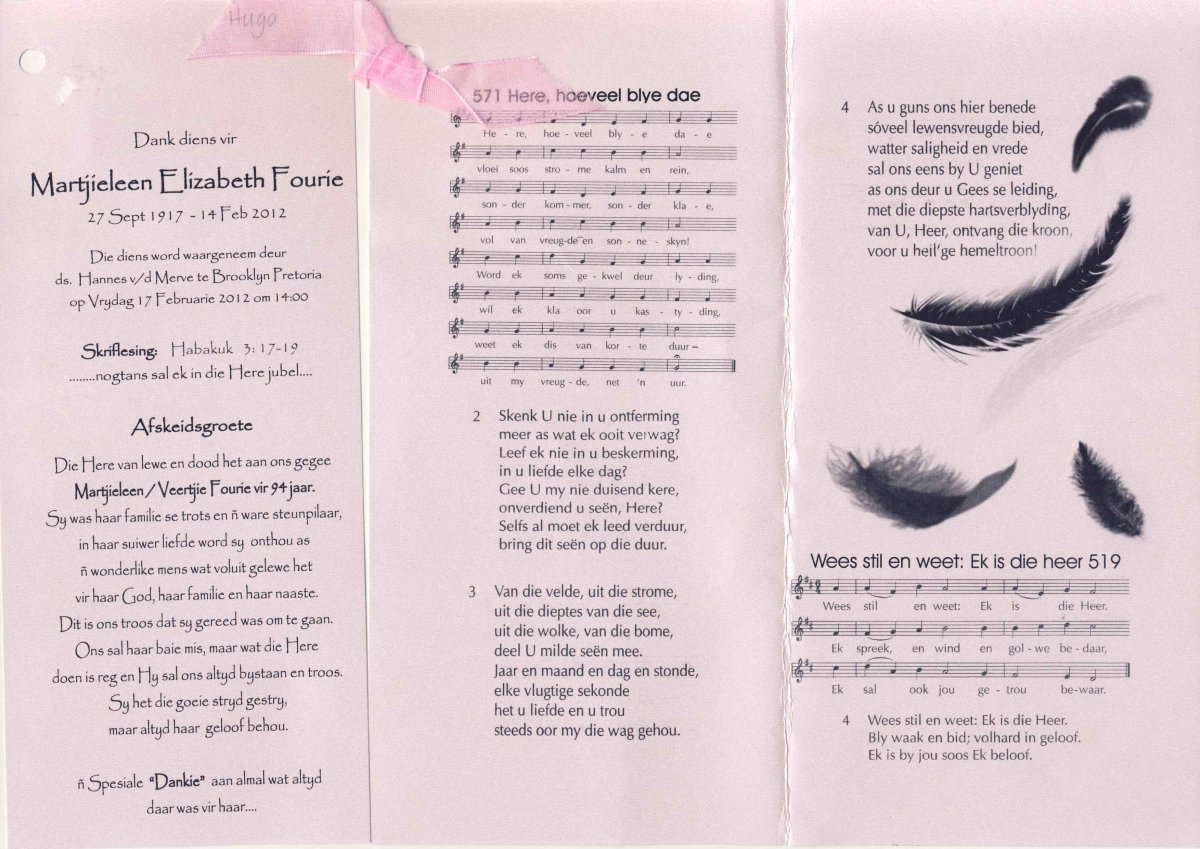 Hugo
Dank diens vir
Martjieleen Elizabeth Fourie
27 Sept 1917 - 14 Feb 2012
Die diens word waargeneem deur
ds. Hannes v/d Merve te Brooklyn Pretoria
op Vrydag 17 Februarie 2012 om 14:00
Skriflesing: Habakuk 3: 17-19
........nogtans sal ek in die Here jubel....
Afskeidsgroete
Die Here van lewe en dood het aan ons gegee
Martjieleen / Veertjie Fourie vir 94 jaar.
Sy was haar familie se trots en ñ ware steunpilaar,
in haar suiwer liefde word sy onthou as
ñ wonderlike mens wat voluit gelewe het
vir haar God, haar familie en haar naaste.
Dit is ons troos dat sy gereed was om te gaan.
Ons sal haar baie mis, maar wat die Here
doen is reg en Hy sal ons altyd bystaan en troos.
Sy het die goeie stryd gestry,
maar altyd haar geloof behou.
ñ Spesiale "Dankie" aan almal wat altyd
daar was vir haar....
571 Here, hoeveel blye dae
He - re, hoe - veel bly - e da - e
vloei soos stro - me kalm en rein,
son - der kom - mer, son - der kla - e,
vol van vreug-de en son - ne - skyn!
Word ek soms ge - kwel deur ly - ding,
wil ek kla oor u kas - ty - ding,
weet ek dis van kor - te duur –
uit my vreug - de, net 'n uur.
2 Skenk U nie in u ontferming
meer as wat ek ooit verwag?
Leef ek nie in u beskerming,
in u liefde elke dag?
Gee U my nie duisend kere,
onverdiend u seën, Here?
Selfs al moet ek leed verduur,
bring dit seën op die duur.
3 Van die velde, uit die strome,
uit die dieptes van die see,
uit die wolke, van die bome,
deel U milde seën mee.
Jaar en maand en dag en stonde,
elke vlugtige sekonde
het u liefde en u trou
steeds oor my die wag gehou.
4 As u guns ons hier benede
sóveel lewensvreugde bied,
watter saligheid en vrede
sal ons eens by U geniet
as ons deur u Gees se leiding,
met die diepste hartsverblyding,
van U, Heer, ontvang die kroon,
voor u heil'ge hemeltroon!
Wees stil en weet: Ek is die heer 519
Wees stil en weet: Ek is die Heer.
Ek spreek, en wind en gol - we be - daar,
Ek sal ook jou ge - trou be - waar.
4 Wees stil en weet: Ek is die Heer.
Bly waak en bid; volhard in geloof.
Ek is by jou soos Ek beloof.